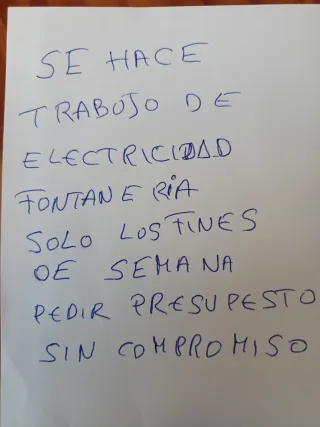 SE HACE
TRABOJO DE
ELECTRICIDAD
FONTANERIA
SOLO LOS FINES
DE SEMANA
PEDIR PRESUPESTO
SIN COMPROMISO